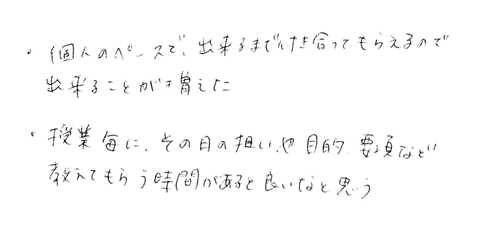 ・個人のペースで、出来るまで付き合ってもらえるので
出来ることが増えた
・授業毎に、その日の担い、や目的、要項など
教えてもらう時間があると良いなと思う